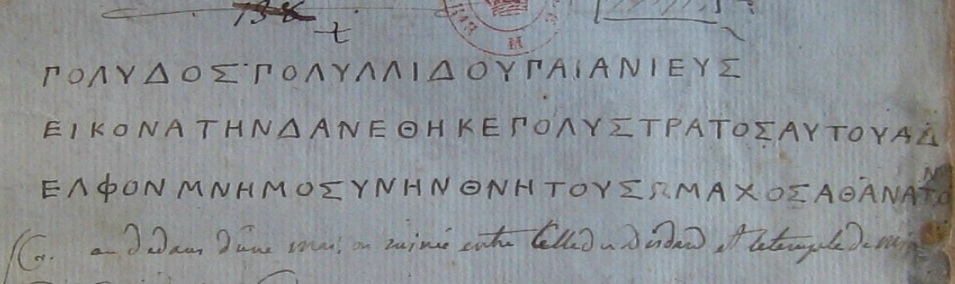 138
t
ΠΟΛΥΔΟΣ ΠΟΛΥΛΛΙΔΟΥ ΠΑΙΑΝΙΕΥΣ
ΕΙΚΟΝΑΤΗΝΔΑΝΕΘΗΚΕΠΟΛΥΣΤΡΑΤΟΣΑΥΤΟΥΑΔ
ΕΛΦΟΝΜΝΗΜΟΣΥΝΗΝΘΝΗΤΟΥΣΩΜΑΧΟΣΑΘΑΝΑΤΟΝ
au dedans d'une maison ruinée entre et le temple de